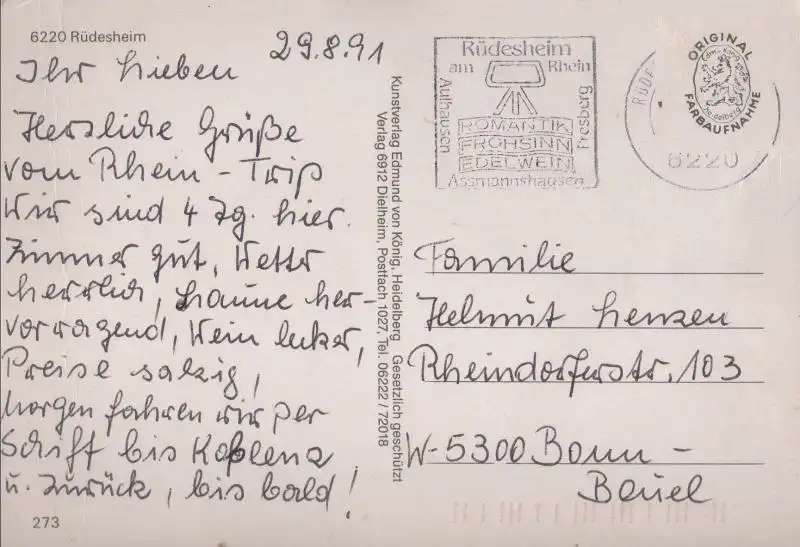 6220 Rüdesheim
29.8.91
Ihr Lieben
Herzliche Grüße
vom Rhein-Trip
Wir sind 4 Tg. hier.
Zimmer gut, Wetter
herrlich, Laune her-
vorragend, Wein lecker,
Preise salzig,
morgen fahren wir per
Schiff bis Koblenz
u. zurück, bis bald!
273
Kunstverlag Edmund von König, Heidelberg Gesetzlich geschützt
Verlag 6912 Dielheim, Postfach 1027, Tel. 06222 / 72018
Rüdesheim
am Rhein
Aulhausen
Presberg
ROMANTIK
FROHSINN
EDELWEIN
Assmannshausen
RÜDE
6220
ORIGINAL
FARBAUFNAHME
Familie
Helmut Lenzen
Rheindorferstr. 103
W-5300 Bonn-
Beuel